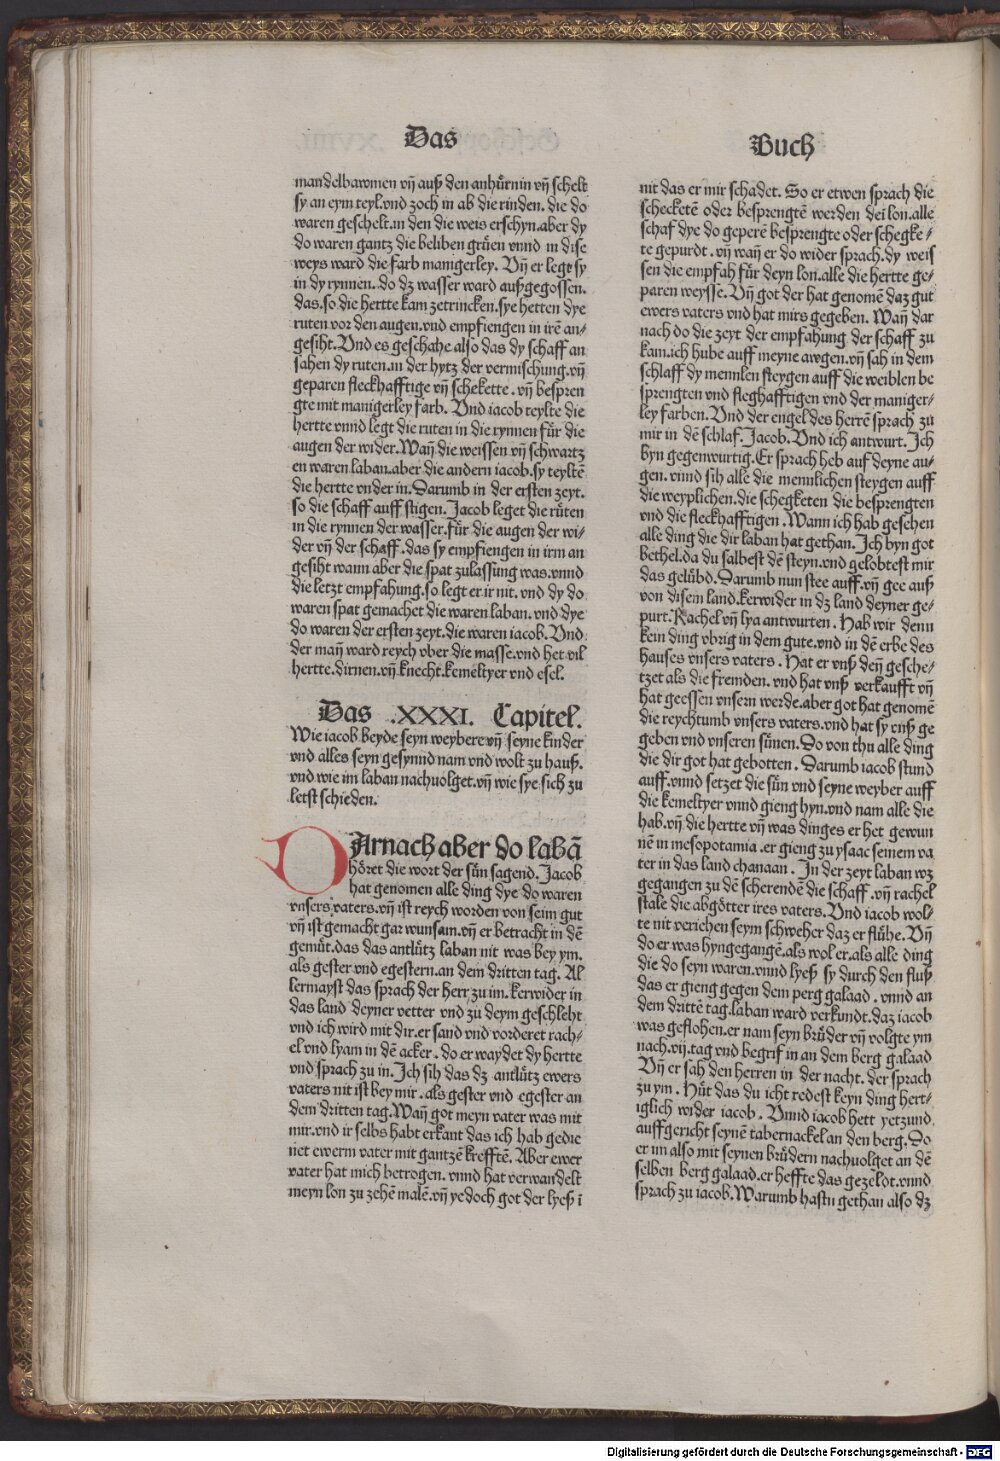 Das
Buch
mandelbawmen vñ auß den anhürnin vñ schelt
sy an eym teyl.vnd zoch in ab die rinden. die do
waren geschelt.in den die weis erschyn.aber dy
do waren gantz die beliben grůen vnnd in dise
weys ward die farb manigerley. Vñ er legt sy
in dy rynnen. do dz wasser ward außgegossen.
das.so die hertte kam zetrincken.sye hetten dye
ruten vor den augen.vnd empfiengen in irē an⸗
gesiht.Vnd es geschahe also das dy schaff an
sahen dy ruten.in der hytz der vermischung.vñ
geparen fleckhafftige vñ schekette . vñ bespren
gte mit manigerley farb. Vnd iacob teylte die
hertte vnnd legt die ruten in die rynnen fůr die
augen der wider.Wañ die weissen vñ schwartz
en waren laban.aber die andern iacob.sy teyltē
die hertte vnder in.Darumb in der ersten zeyt.
so die schaff auff stigen. Jacob leget die růten
in die rynnen der wasser.fůr die augen der wi⸗
der vñ der schaff.das sy empfiengen in irm an
gesiht wann aber die spat zulassung was.vnnd
die letzt empfahung.so legt er ir nit. vnd dy do
waren spat gemachet die waren laban. vnd dye
do waren der ersten zeyt.die waren iacob. Vnd
der mañ ward reych vber die masse.vnd het vil
hertte.dirnen.vñ knecht.kemeltyer vnd esel.
Das .XXXI. Capitel.
Wie iacob beyde seyn weybere vñ seyne kinder
vnd alles seyn gesynnd nam vnd wolt zu hauß.
vnd wie im laban nachuolget.vñ wie sye sich zu
letst schieden.
DArnach aber do labā
hôret die wort der sün sagend. Jacob
hat genomen alle ding dye do waren
vnsers vaters.vñ ist reych worden von seim gut
vñ ist gemacht gar wunsam.vñ er betracht in dē
gemůt.das das antlůtz laban nit was bey ym.
als gester vnd egestern.an dem dritten tag. Al
lermayst das sprach der herr zu im.kerwider in
das land deyner vetter vnd zu deym geschleht
vnd ich wird mit dir.er sand vnd vorderet rach⸗
el vnd lyam in dē acker. do er waydet dy hertte
vnd sprach zu in.Ich sih das dz antlůtz ewers
vaters nit ist bey mir. als gester vnd egester an
dem dritten tag.Wañ got meyn vater was mit
mir.vnd ir selbs habt erkant das ich hab gedie
net ewerm vater mit gantzē krefftē. Aber ewer
vater hat mich betrogen. vnnd hat verwandelt
meyn lon zu zehē malē.vñ yedoch got der lyeß ī
nit das er mir schadet. So er etwen sprach die
scheckctē oder besprengtē werden dei lon.alle
schaf dye do geperē besprengte oder schegke⸗
te gepurdt. vñ wañ er do wider sprach.dy weis
sen die empfah fůr deyn lon.alle die hertte ge⸗
paren weysse.Vñ got der hat genomē daz gut
ewers vaters vnd hat mirs gegeben. Wañ dar
nach do die zeyt der empfahung der schaff zu
kam.ich hube auff meyne awgen.vñ sah in dem
schlaff dy mennlen steygen auff die weiblen be
sprengten vnd fleghafftigen vnd der maniger⸗
ley farben.Vnd der engel des herrē sprach zu
mir in dē schlaf.Jacob.Vnd ich antwurt. Ich
byn gegenwurtig.Er sprach heb auf deyne au⸗
gen.vnnd sih alle die mennlichen steygen auff
die weyplichen.die schegketen die besprengten
vnd die fleckhafftigen. Wann ich hab gesehen
alle ding die dir laban hat gethan. Ich byn got
bethel.da du salbest dē steyn.vnd gelobtest mir
das gelůbd.Darumb nun stee auff.vñ gee auß
von disem land.kerwider in dz land deyner ge⸗
purt.Rachel vñ lya antwurten. Hab wir denn
kein ding vbrig in dem gute.vnd in dē erbe des
hauses vnsers vaters. Hat er vnß deñ gesche⸗
tzet als die fremden. vnd hat vnß verkaufft vñ
hat geessen vnsern werde.aber got hat genomē
die reychtumb vnsers vaters.vnd hat sy vnß ge
geben vnd vnseren sůnen.So von thu alle ding
die dir got hat gebotten. Darumb iacob stund
auff.vnnd setzet die sůn vnd seyne weyber auff
die kemeltyer vnnd gieng hyn.vnd nam alle die
hab.vñ die hertte vñ was dinges er het gewun
nē in mesopotamia.er gieng zu ysaac seinem va
ter in das land chanaan. In der zeyt laban wz
gegangen zu dē scherendē die schaff.vñ rachel
stale die abgôtter ires vaters. Vnd iacob wol⸗
te nit verichen seym schweher daz er flůhe. Vñ
do er was hyngegangē.als wol er.als alle ding
die do seyn waren.vnnd lyeß sy durch den fluß
das er gieng gegen dem perg galaad. vnnd an
dem drittē tag.laban ward verkundt.daz iacob
was geflohen.er nam seyn brůder vñ volgte ym
nach.vij.tag vnd begrif in an dem berg galaad
Vñ er sah den herren in der nacht. der sprach
zu ym. Hůt das du icht redest keyn ding hert⸗
iglich wider iacob. Vnnd iacob hett yetzund
auffgericht seynē tabernackel an den berg. Do
er im also mit seynen brůdern nachuolget an dē
selben berg galaad.er heffte das gezeldt.vnnd
sprach zu iacob.Warumb hastu gethan also dz
Digitalisierung gefördert durch die Deutsche Forschungsgemeinschaft - DFG